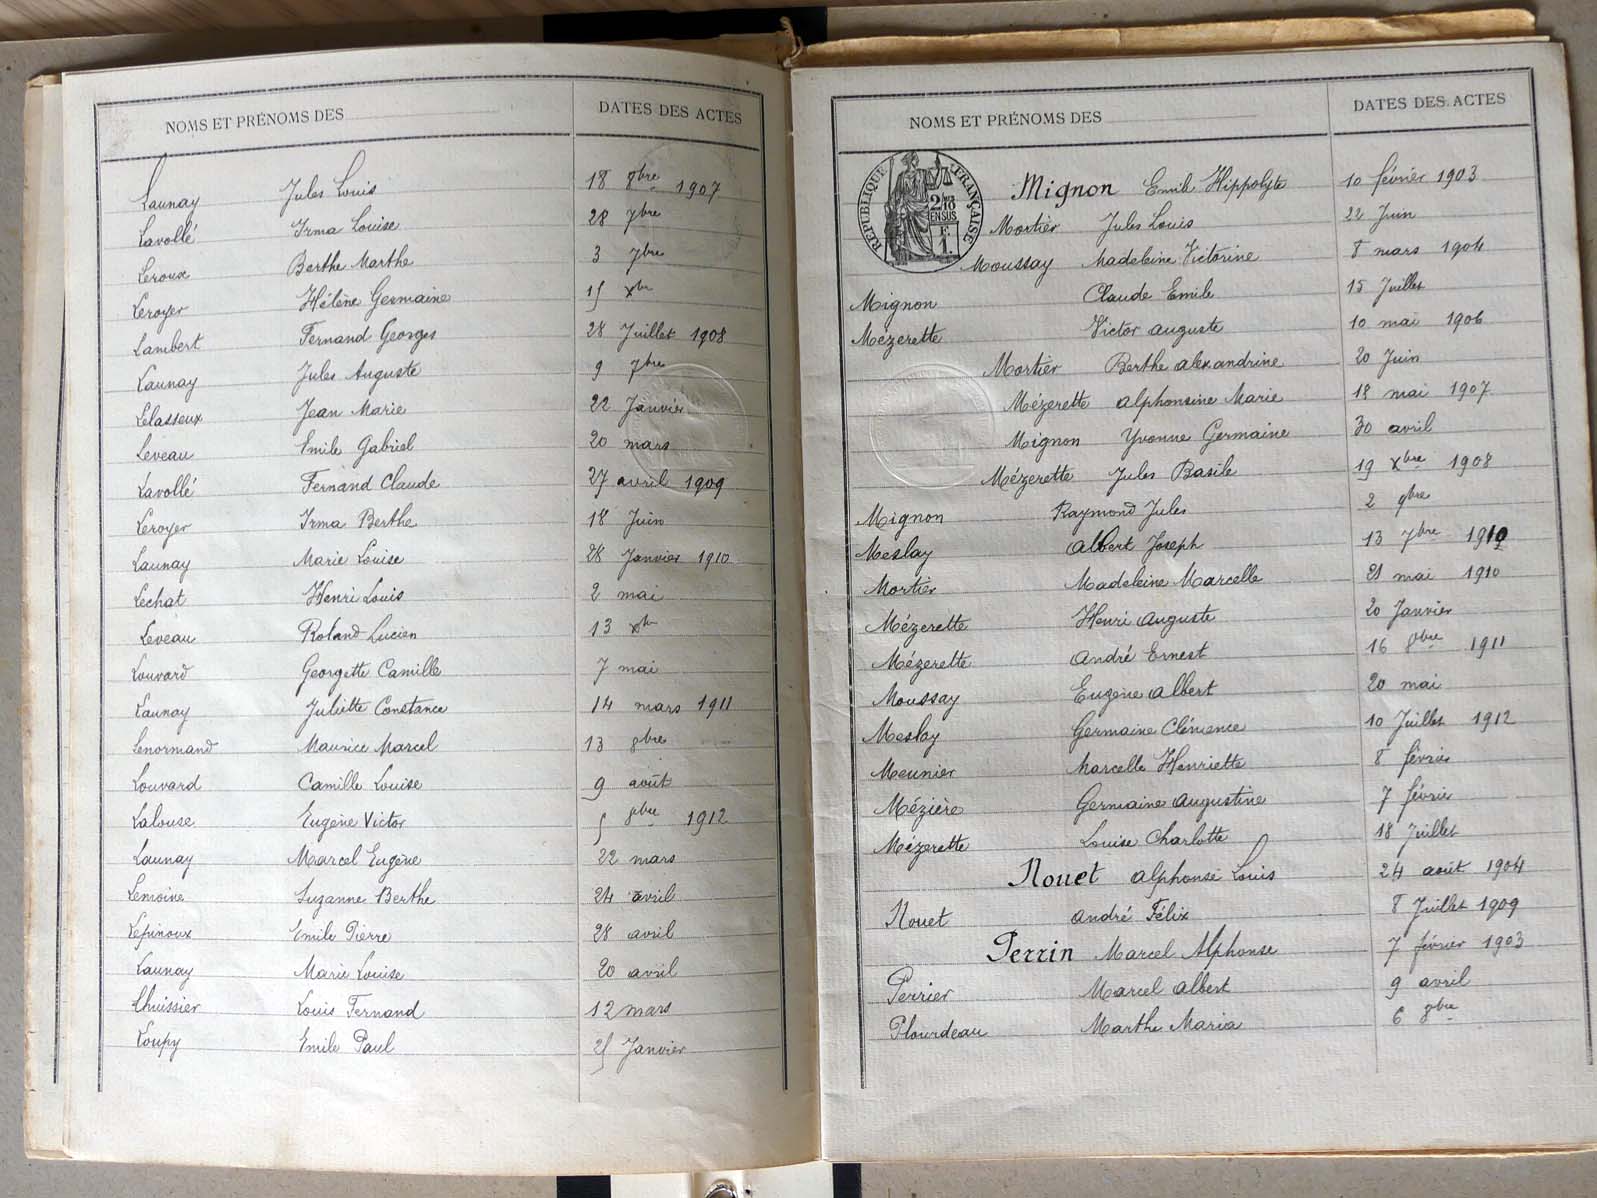 NOMS ET PRÉNOMS DES DATES DES ACTES
Launay Jules Louis 18 8bre 1907
Lavollé Irma Louise 28 7bre
Leroux Berthe Marthe 3 7bre
Leroyer Hélène Germaine 15 Xbre
Lambert Fernand Georges 28 Juillet 1908
Launay Jules Auguste 9 7bre
Lelasseux Jean Marie 22 Janvier
Leveau Emile Gabriel 20 mars
Lavollé Fernand Claude 27 avril 1909
Leroyer Irma Berthe 18 Juin
Launay Marie Louise 28 Janvier 1910
Lechat Henri Louis 2 mai
Leveau Roland Lucien 13 Xbre
Louvard Georgette Camille 7 mai
Launay Juliette Constance 14 mars 1911
Lenormand Maurice Marcel 13 8bre
Louvard Camille Louise 9 août
Lalouse Eugène Victor 5 8bre 1912
Launay Marcel Eugène 22 mars
Lemoine Suzanne Berthe 24 avril
Lepinoux Emile Pierre 28 avril
Launay Marie Louise 20 avril
Lhuissier Louis Fernand 12 mars
Loupy Emile Paul 25 Janvier
NOMS ET PRÉNOMS DES DATES DES ACTES
RÉPUBLIQUE FRANÇAISE
2/10 EN SUS
Mignon Emile Hippolyte 10 février 1903
Mortier Jules Louis 22 Juin
Moussay Madeleine Victorine 8 mars 1904
Mignon Claude Emile 15 Juillet
Mézerette Victor auguste 10 mai 1906
Mortier Berthe alexandrine 20 Juin
Mézerette alphonsine Marie 18 mai 1907
Mignon Yvonne Germaine 30 avril
Mézerette Jules Basile 19 Xbre 1908
Mignon Raymond Jules 2 9bre
Meslay Albert Joseph 13 7bre 1910
Mortier Madeleine Marcelle 21 mai 1910
Mézerette Henri auguste 20 Janvier
Mézerette andré Ernest 16 8bre 1911
Moussay Eugène albert 20 mai
Meslay Germaine Clémence 10 Juillet 1912
Meunier Marcelle Henriette 8 février
Mézière Germaine augustine 7 février
Mézerette Louise Charlotte 18 Juillet
Nouet alphonse Louis 24 août 1904
Nouet andré Félix 8 Juillet 1909
Perrin Marcel Alphonse 7 février 1903
Perrier Marcel albert 9 avril
Plourdeau Marthe Maria 6 8bre